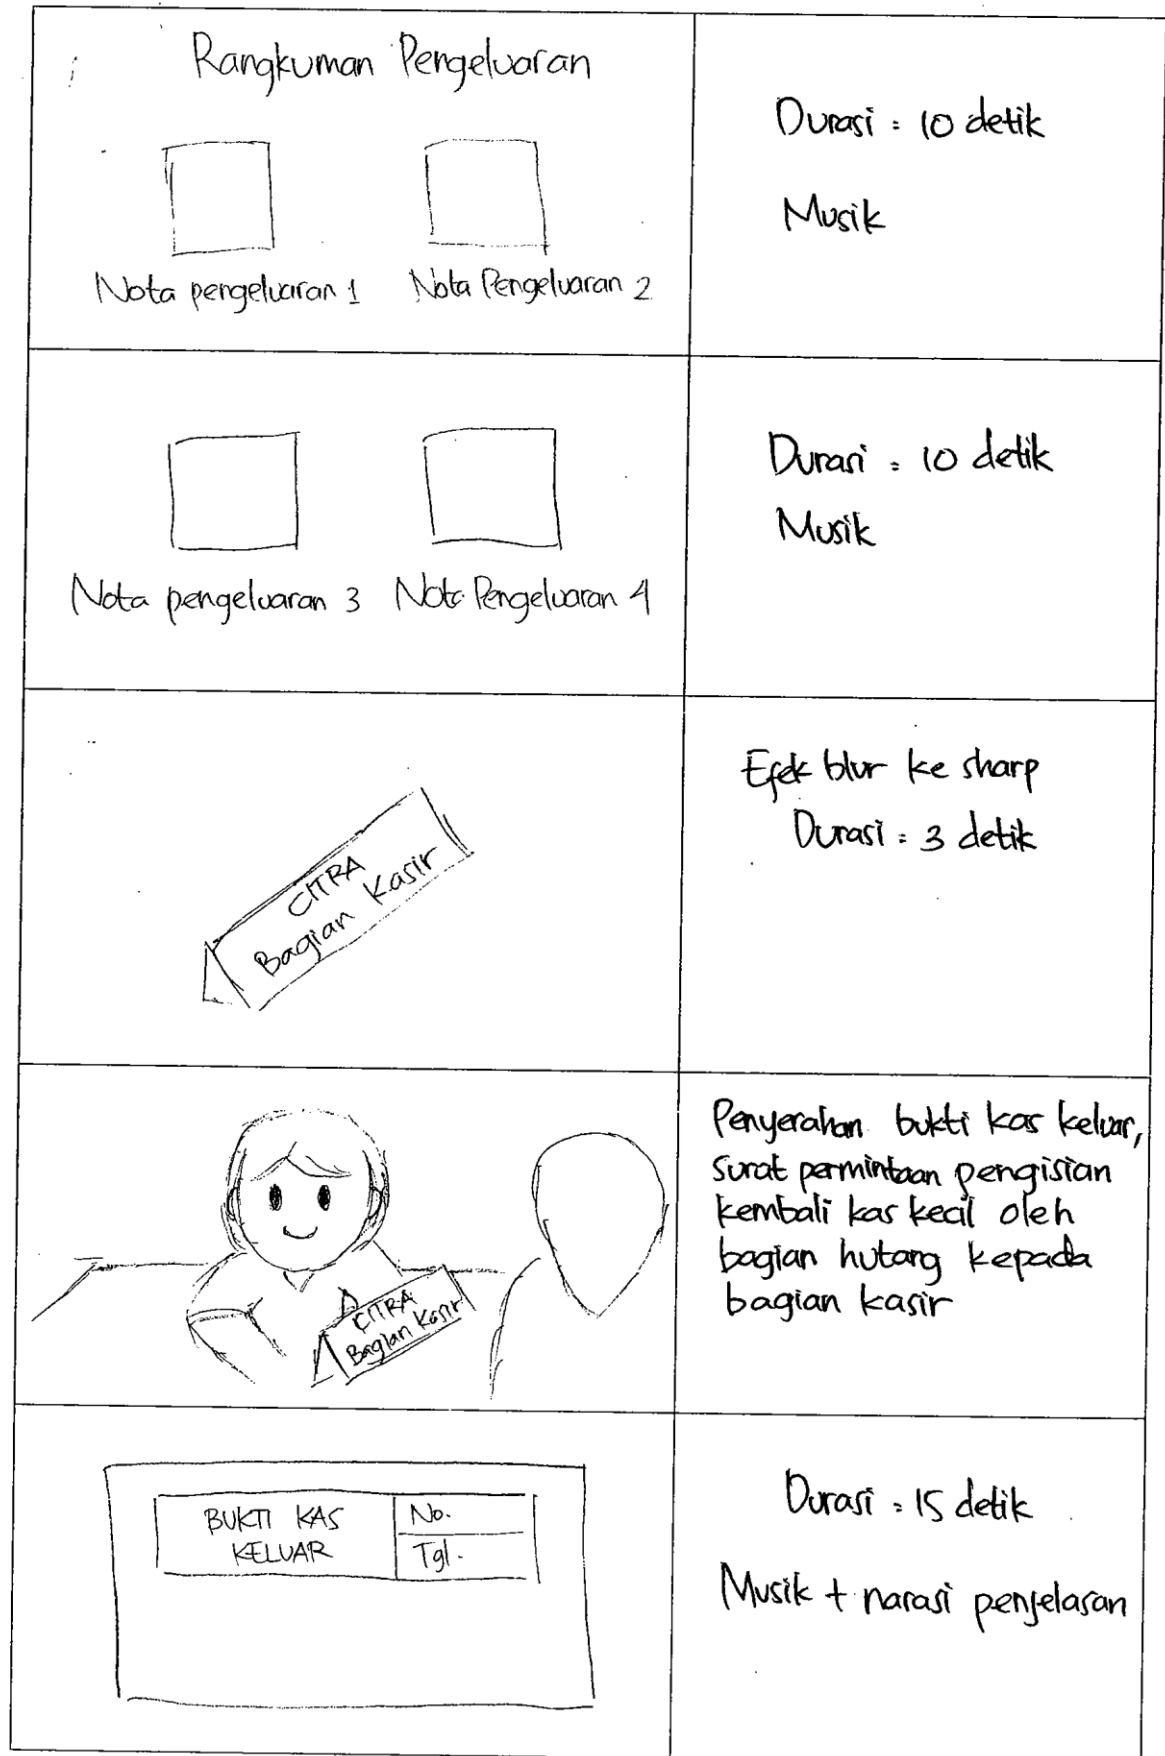 Rangkuman Pengeluaran
Nota pengeluaran 1
Nota Pengeluaran 2
Durasi = 10 detik
Musik
Nota pengeluaran 3
Nota Pengeluaran 4
Durasi = 10 detik
Musik
CITRA
Bagian Kasir
Efek blur ke sharp
Durasi = 3 detik
CITRA
Bagian Kasir
Penyerahan bukti kas keluar,
surat permintaan pengisian
kembali kas kecil oleh
bagian hutang kepada
bagian kasir
BUKTI KAS
KELUAR
No.
Tgl.
Durasi = 15 detik
Musik + narasi penjelasan